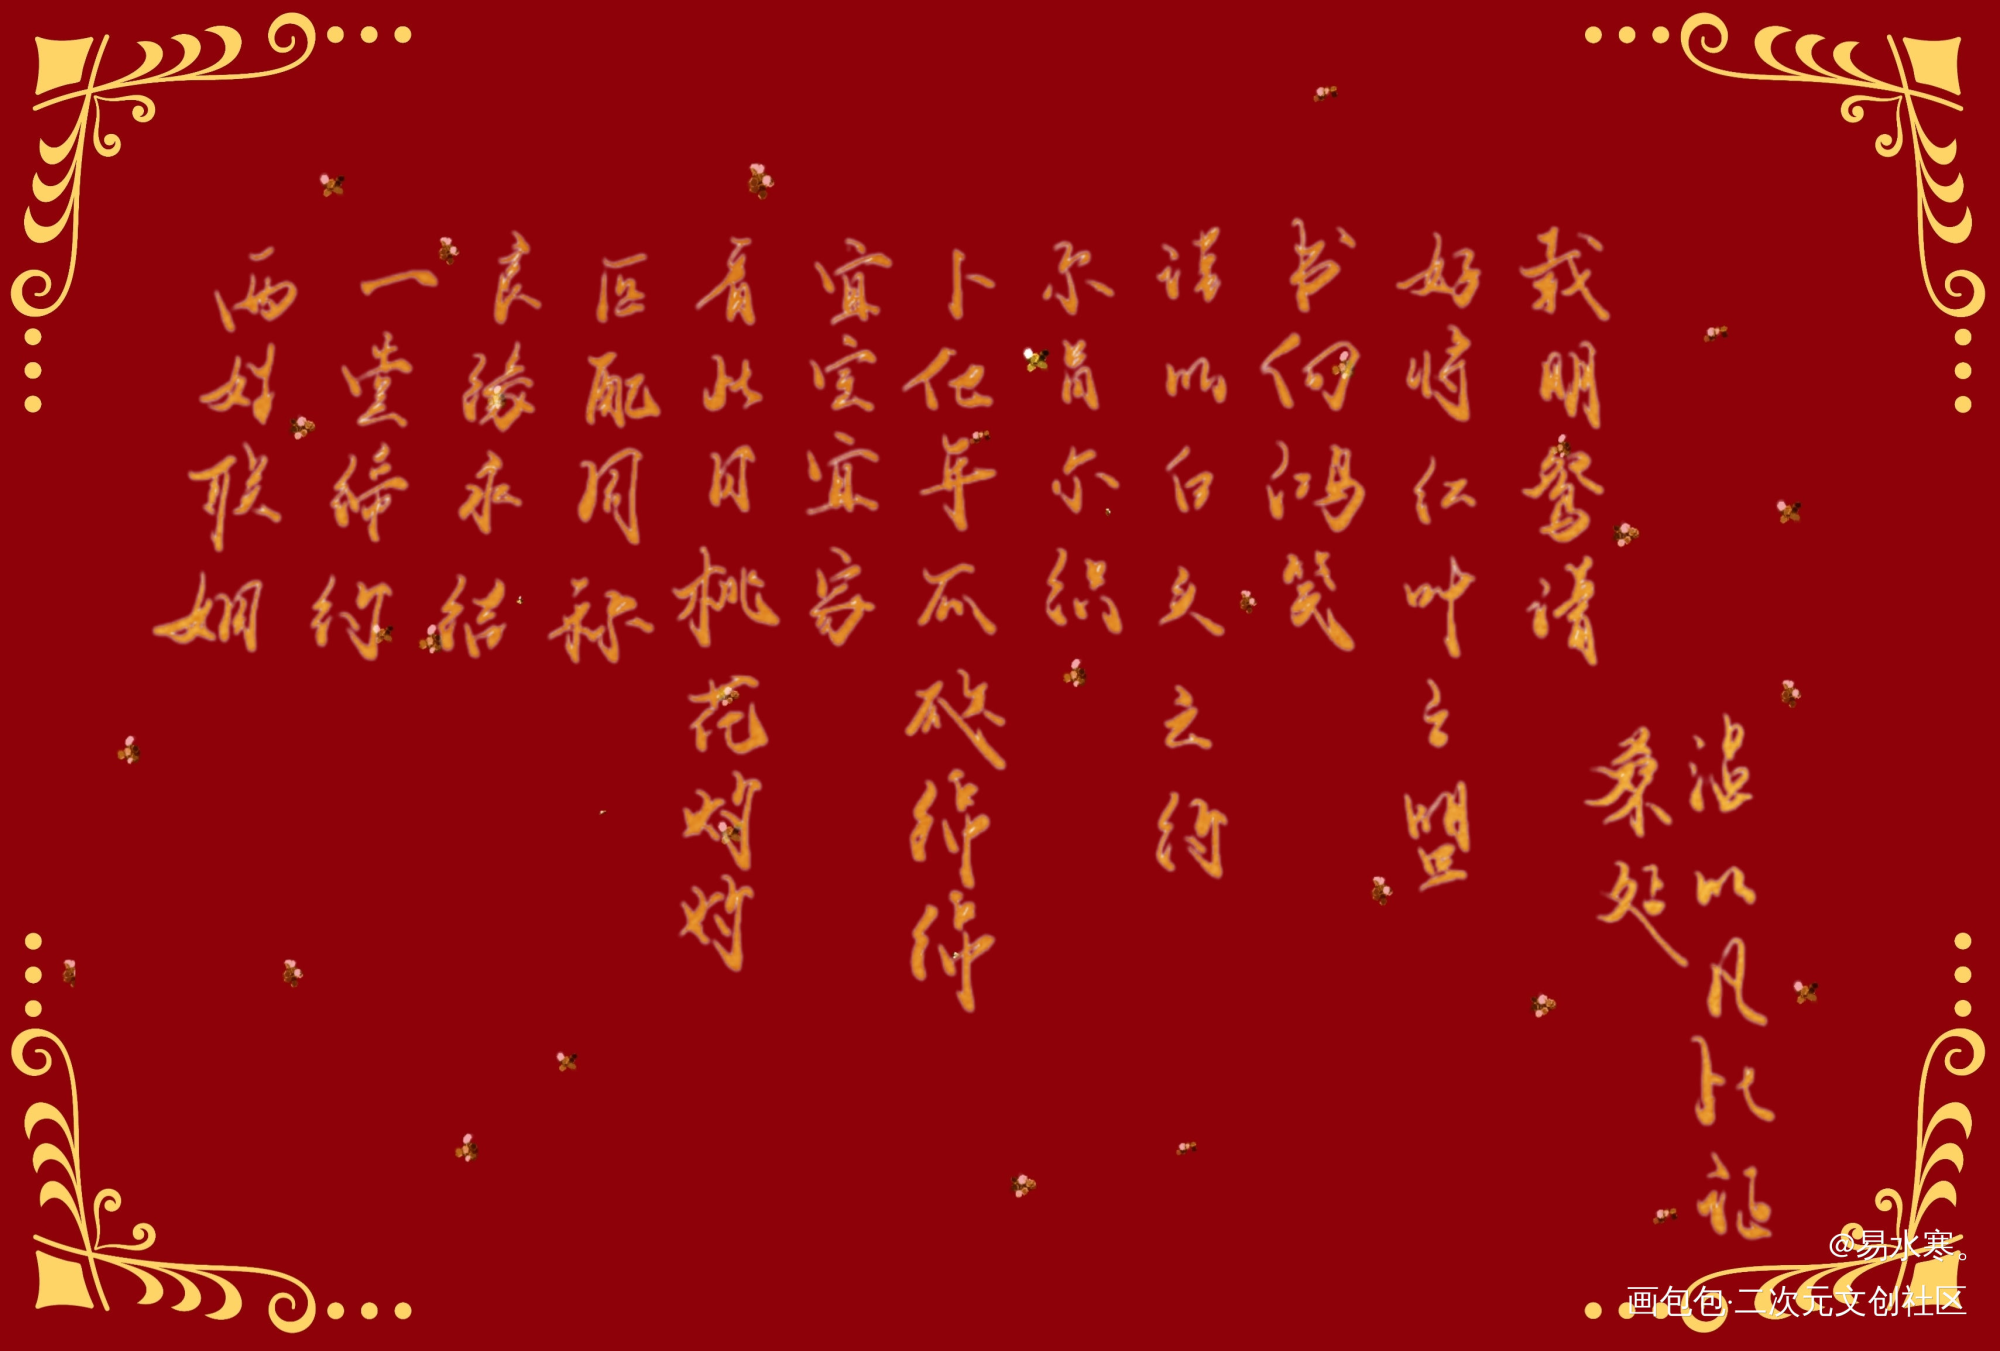 两姓联姻
一堂缔约
良缘永结
匹配同称
看此日桃花灼灼
宜室宜家
卜他年瓜瓞绵绵
尔昌尔炽
谨以白头之约
书向鸿笺
好将红叶之盟
载明鸳谱
桑延
温以凡此证
@易水寒。
画包包·二次元文创社区